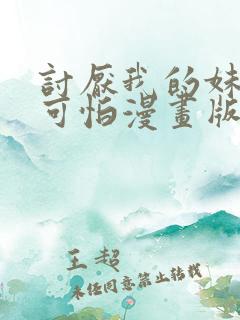 討厭我的妹
可怕漫畫版
王超
未经同意禁止转载